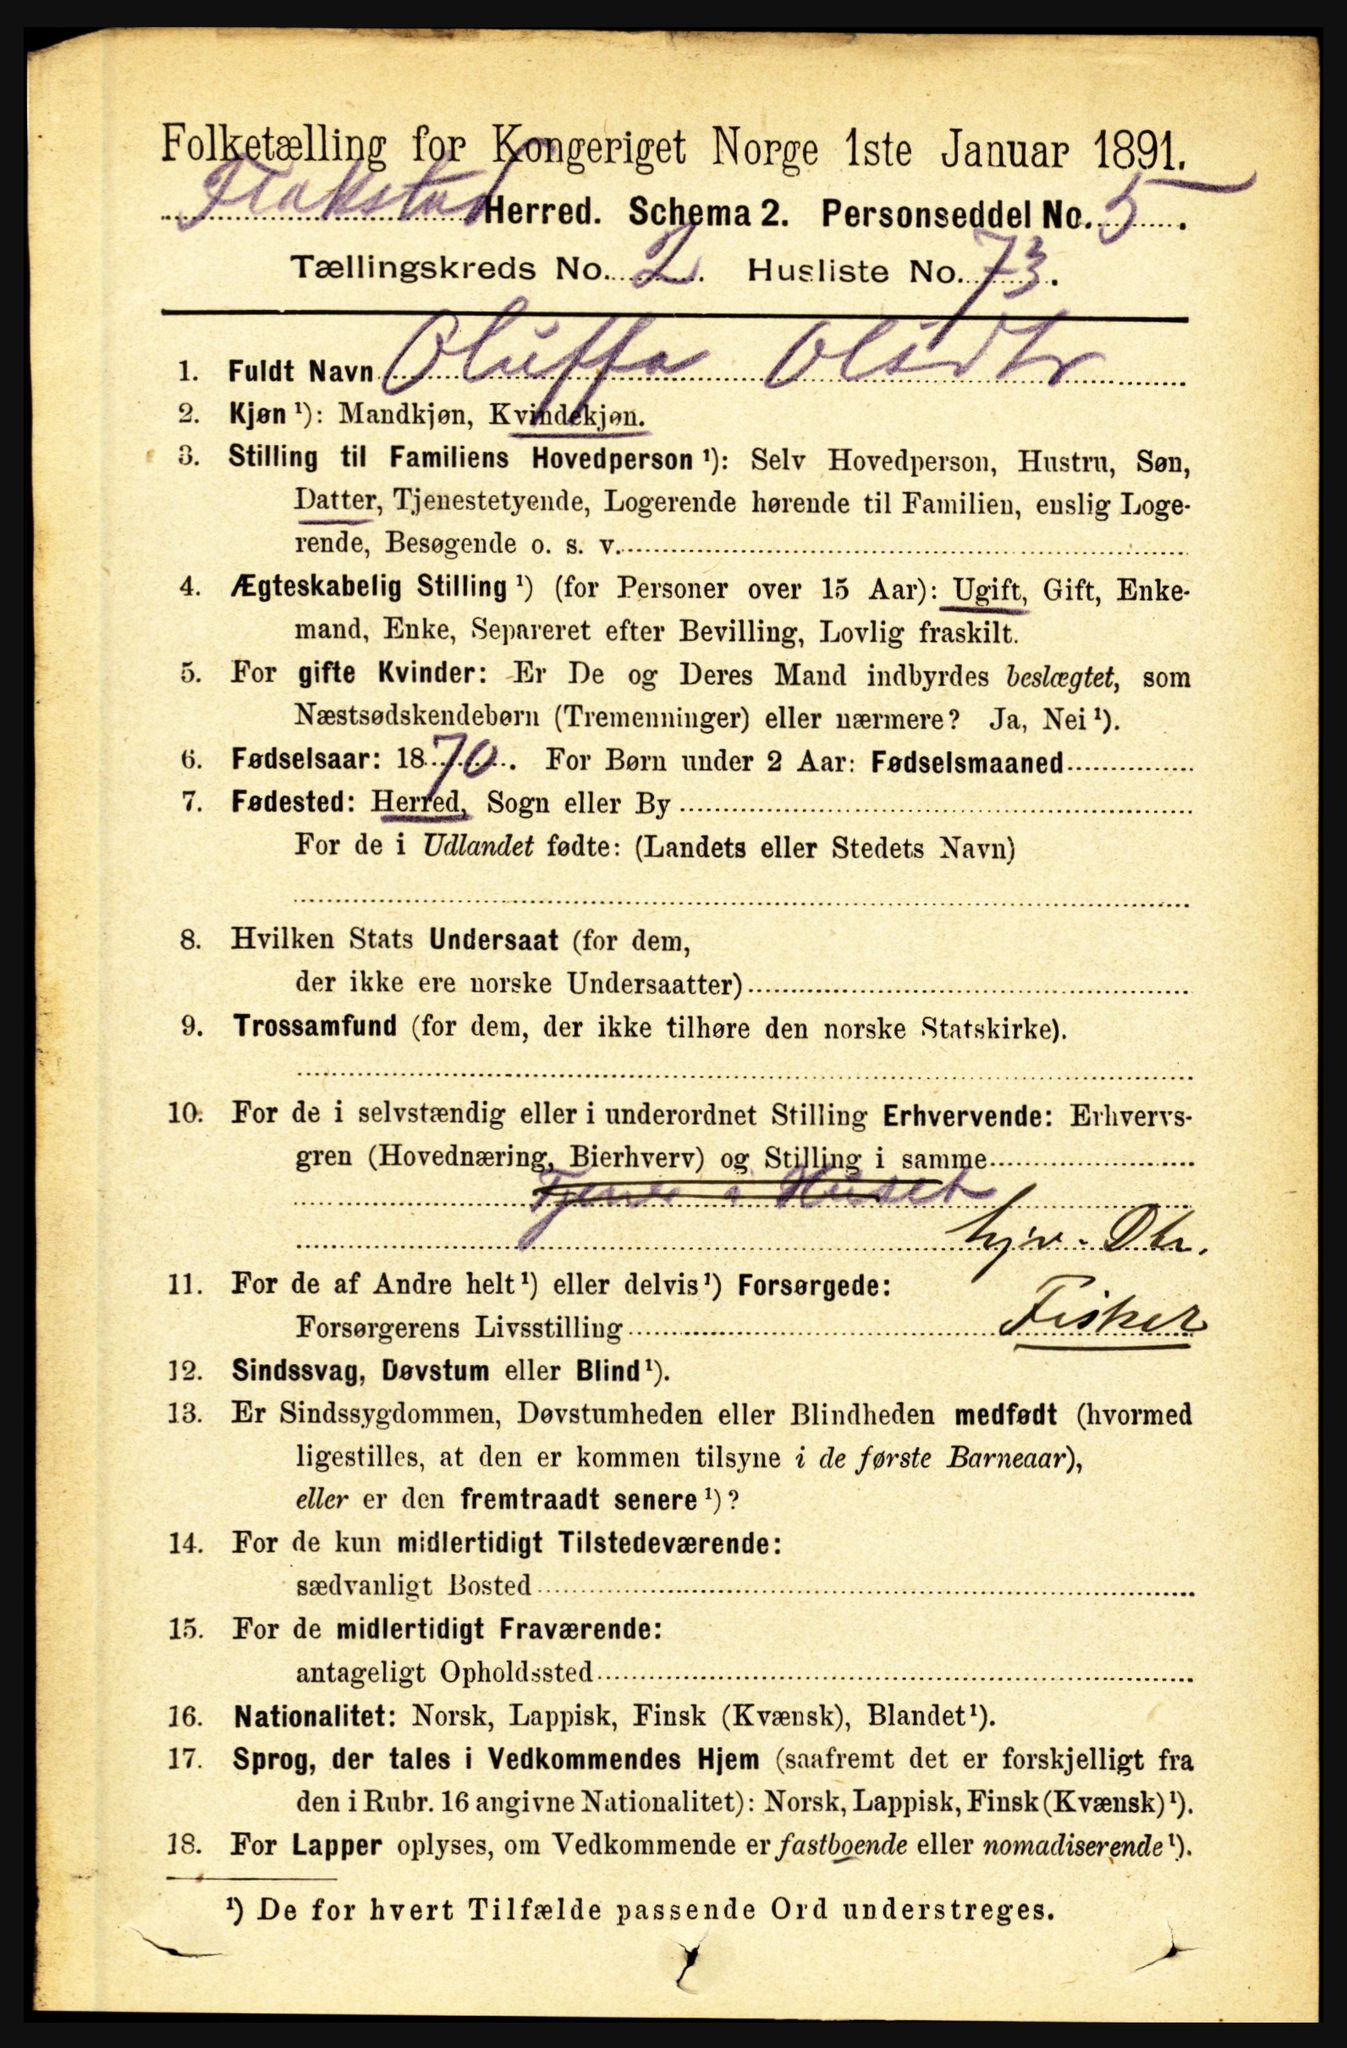 Folketælling for Kongeriget Norge 1ste Januar 1891.
Flakstad Herred. Schema 2. Personseddel No. 5.
Tællingskreds No. 2. Husliste No. 73.
1. Fuldt Navn Oluffa Olsdtr
2. Kjøn ¹): Mandkjøn, Kvindekjøn.
3. Stilling til Familiens Hovedperson ¹): Selv Hovedperson, Hustru, Søn,
Datter, Tjenestetyende, Logerende hørende til Familien, enslig Loge-
rende, Besøgende o. s. v.
4. Ægteskabelig Stilling ¹) (for Personer over 15 Aar): Ugift, Gift, Enke-
mand, Enke, Separeret efter Bevilling, Lovlig fraskilt.
5. For gifte Kvinder: Er De og Deres Mand indbyrdes beslægtet, som
Næstsødskendebørn (Tremenninger) eller nærmere? Ja, Nei ¹).
6. Fødselsaar: 1870. For Børn under 2 Aar: Fødselsmaaned
7. Fødested: Herred, Sogn eller By
For de i Udlandet fødte: (Landets eller Stedets Navn)
8. Hvilken Stats Undersaat (for dem,
der ikke ere norske Undersaatter)
9. Trossamfund (for dem, der ikke tilhøre den norske Statskirke).
10. For de i selvstændig eller i underordnet Stilling Erhvervende: Erhvervs-
gren (Hovednæring, Bierhverv) og Stilling i samme
Tjener i Huset
hjv. Dtr.
11. For de af Andre helt ¹) eller delvis ¹) Forsørgede:
Forsørgerens Livsstilling Fisker
12. Sindssvag, Døvstum eller Blind ¹).
13. Er Sindssygdommen, Døvstumheden eller Blindheden medfødt (hvormed
ligestilles, at den er kommen tilsyne i de første Barneaar),
eller er den fremtraadt senere ¹)?
14. For de kun midlertidigt Tilstedeværende:
sædvanligt Bosted
15. For de midlertidigt Fraværende:
antageligt Opholdssted
16. Nationalitet: Norsk, Lappisk, Finsk (Kvænsk), Blandet ¹).
17. Sprog, der tales i Vedkommendes Hjem (saafremt det er forskjelligt fra
den i Rubr. 16 angivne Nationalitet): Norsk, Lappisk, Finsk (Kvænsk) ¹).
18. For Lapper oplyses, om Vedkommende er fastboende eller nomadiserende ¹).
¹) De for hvert Tilfælde passende Ord understreges.